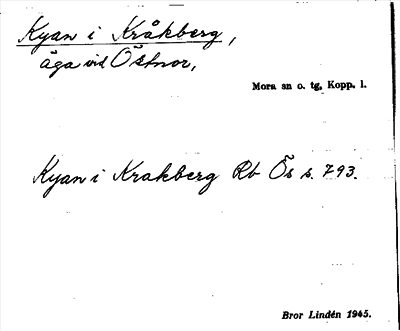 Kyan i Kråkberg,
äga vid Östnor,
Mora sn o. tg, Kopp. l.
Kyan i Krakberg Rb Ös s. 793.
Bror Lindén 1945.